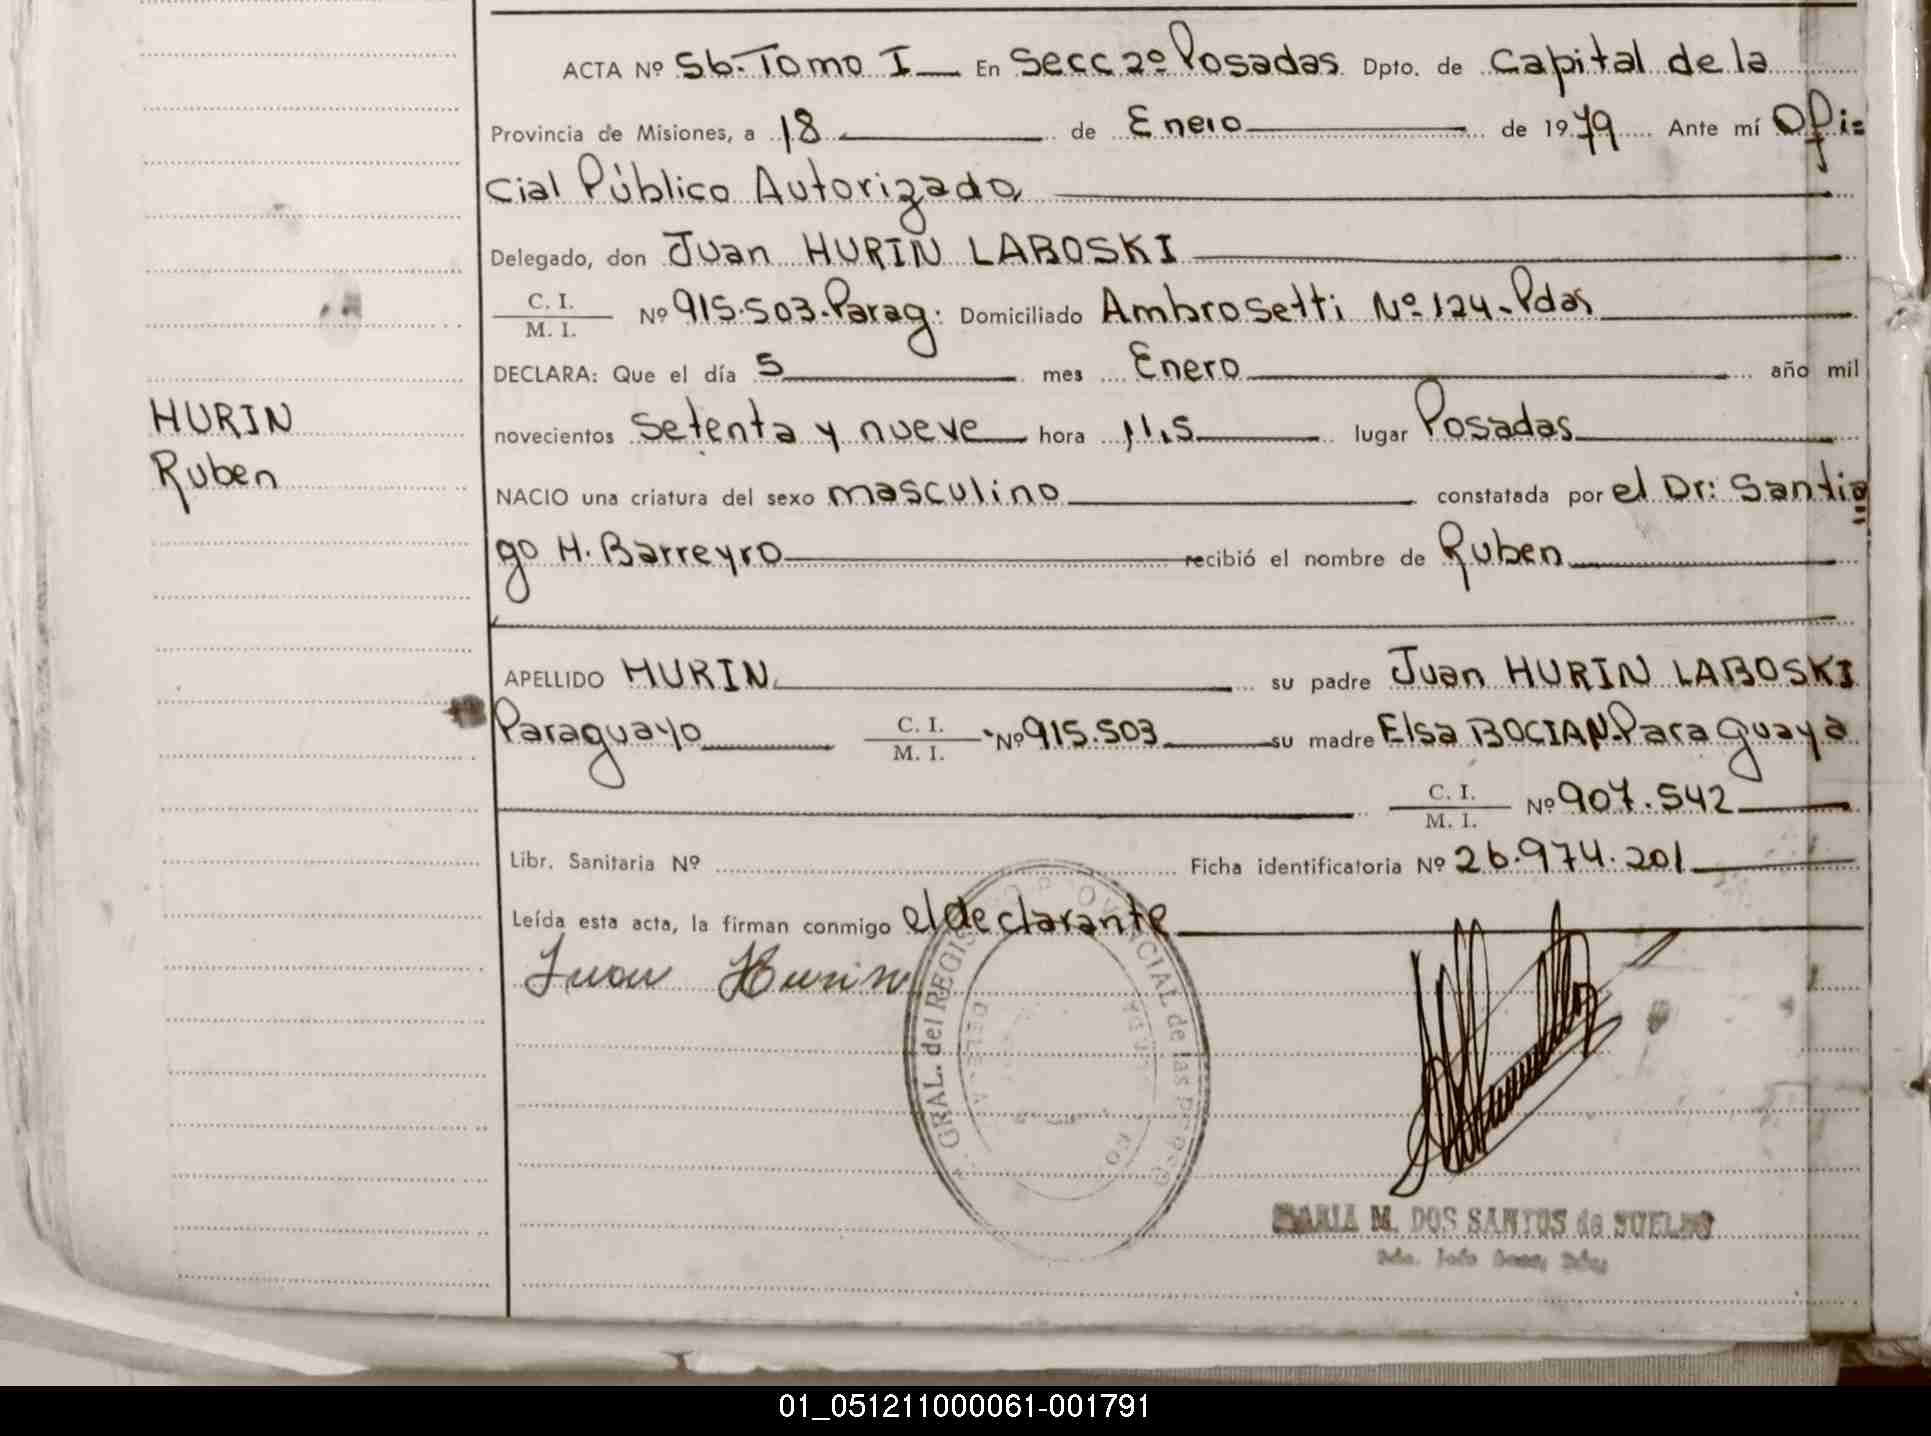 ACTA Nº 56-Tomo I En Secc 2º Posadas Dpto. de Capital de la
Provincia de Misiones, a 18 de Enero de 1979 Ante mí Ofi=
cial Público Autorizado
Delegado, don Juan HURIN LABOSKI
C. I.
M. I.
Nº 915.503.Parag: Domiciliado Ambrosetti Nº 124-Pdas
DECLARA: Que el día 5 mes Enero año mil
novecientos setenta y nueve hora 11,5 lugar Posadas
HURIN
Ruben
NACIO una criatura del sexo masculino constatada por el Dr: Santia
go H. Barreyro recibió el nombre de Ruben
APELLIDO HURIN su padre Juan HURIN LABOSKI
Paraguayo C. I. M. I. Nº 915.503 su madre Elsa BOCIAN.Paraguaya
C. I. M. I. Nº 907.542
Libr. Sanitaria Nº Ficha identificatoria Nº 26.974.201
Leída esta acta, la firman conmigo el declarante
Juan Hurin
GRAL. del REGIS PROVINCIAL de las
MARIA M. DOS SANTOS de SUELDO
01_051211000061-001791